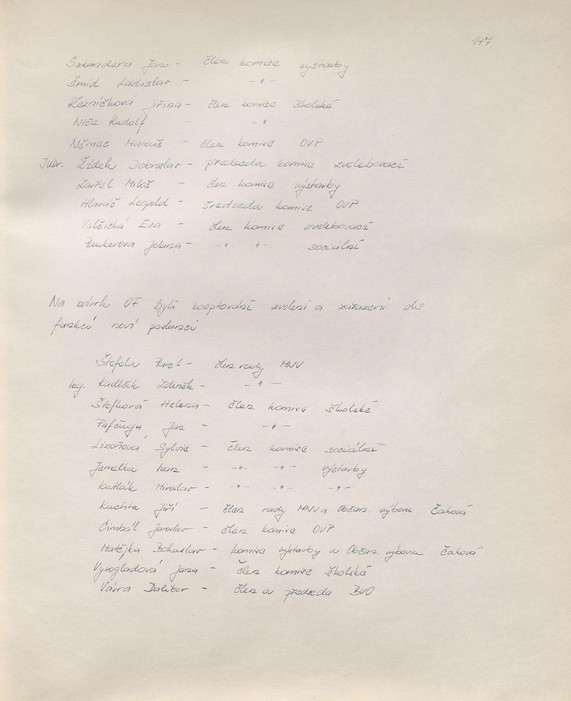 147
Szkandera Jan - člen komise výstavby
Šmíd Ladislav - -"-
Řezníčková Jiřina - člen komise školské
Niče Rudolf - -"
Němec - člen komise OVP
Judr. Žídek Dobroslav - předseda komise zvelebovací
Miloš - člen komise výstavby
Hlaváč Leopold - předseda komise OVP
Eva - člen komise zvelebovací
Zenkerová - -" -" - sociální
Na návrh OF byli kooptováni zvoleni a zařazeni do
funkcí noví poslanci
Štefela - člen rady MNV
Ing. Kadlčák Zdeněk - -"-
Štefková Helena - člen komise školské
Jan - -"-
Sylvie - člen komise sociální
Jemelka - -"- -"- výstavby
Miroslav - -"- -"- -"-
Kuchta Jiří - člen rady MNV a Občan. výboru Čaková
Cimbál Jaroslav - člen komise OVP
Matějka Bohuslav - komise výstavby a Občan. výboru Čaková
Vyvogladová Jana - člen komise školské
Vávra Dalibor - člen a předseda BVO